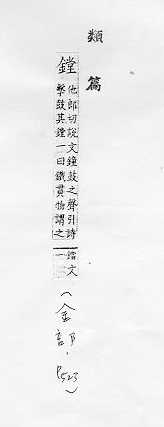 類篇
鏜
他郎切說文鐘鼓之聲引詩
擊鼓其鏜一曰鐵貫物謂之
文
一
(金部, P523)